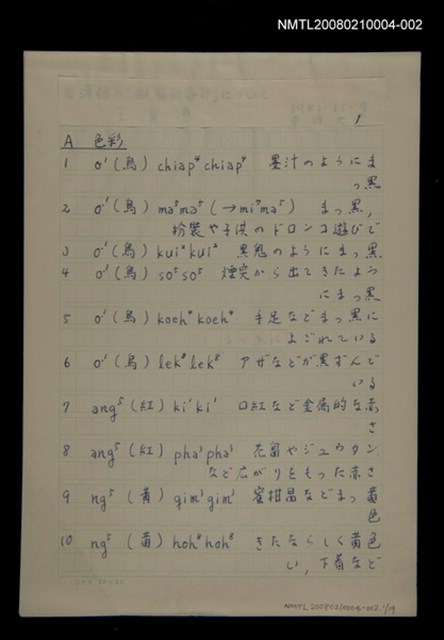 NMTL20080210004-002
1
A 色彩
1 o·¹(烏) chiap⁴ chiap⁴ 墨汁のようにま
っ黒
2 o·¹(烏) ma⁵ma⁵ (→mi⁵ma⁵) まっ黒,
扮装や子供のドロンコ遊びで
3 o·¹(烏) kui²kui² 黒鬼のようにまっ黒
4 o·¹(烏) so⁵so⁵ 煙突から出てきたよう
にまっ黒
5 o·¹(烏) koeh⁴koeh⁴ 手足などまっ黒に
よごれている
6 o·¹(烏) lek⁸lek⁸ アザなどが黒ずんで
いる
7 ang⁵(紅) ki¹ki¹ 口紅など金属的な赤
さ
8 ang⁵(紅) pha³pha³ 花畠やジュウタン
など広がりをもった赤さ
9 ng⁵(黄) gim³gim³ 蜜柑畠などまっ黄
色
10 ng⁵(黄) hoh⁸hoh⁸ きたならしく黄色
い,下着など
NMTL20080210004-002.1/19